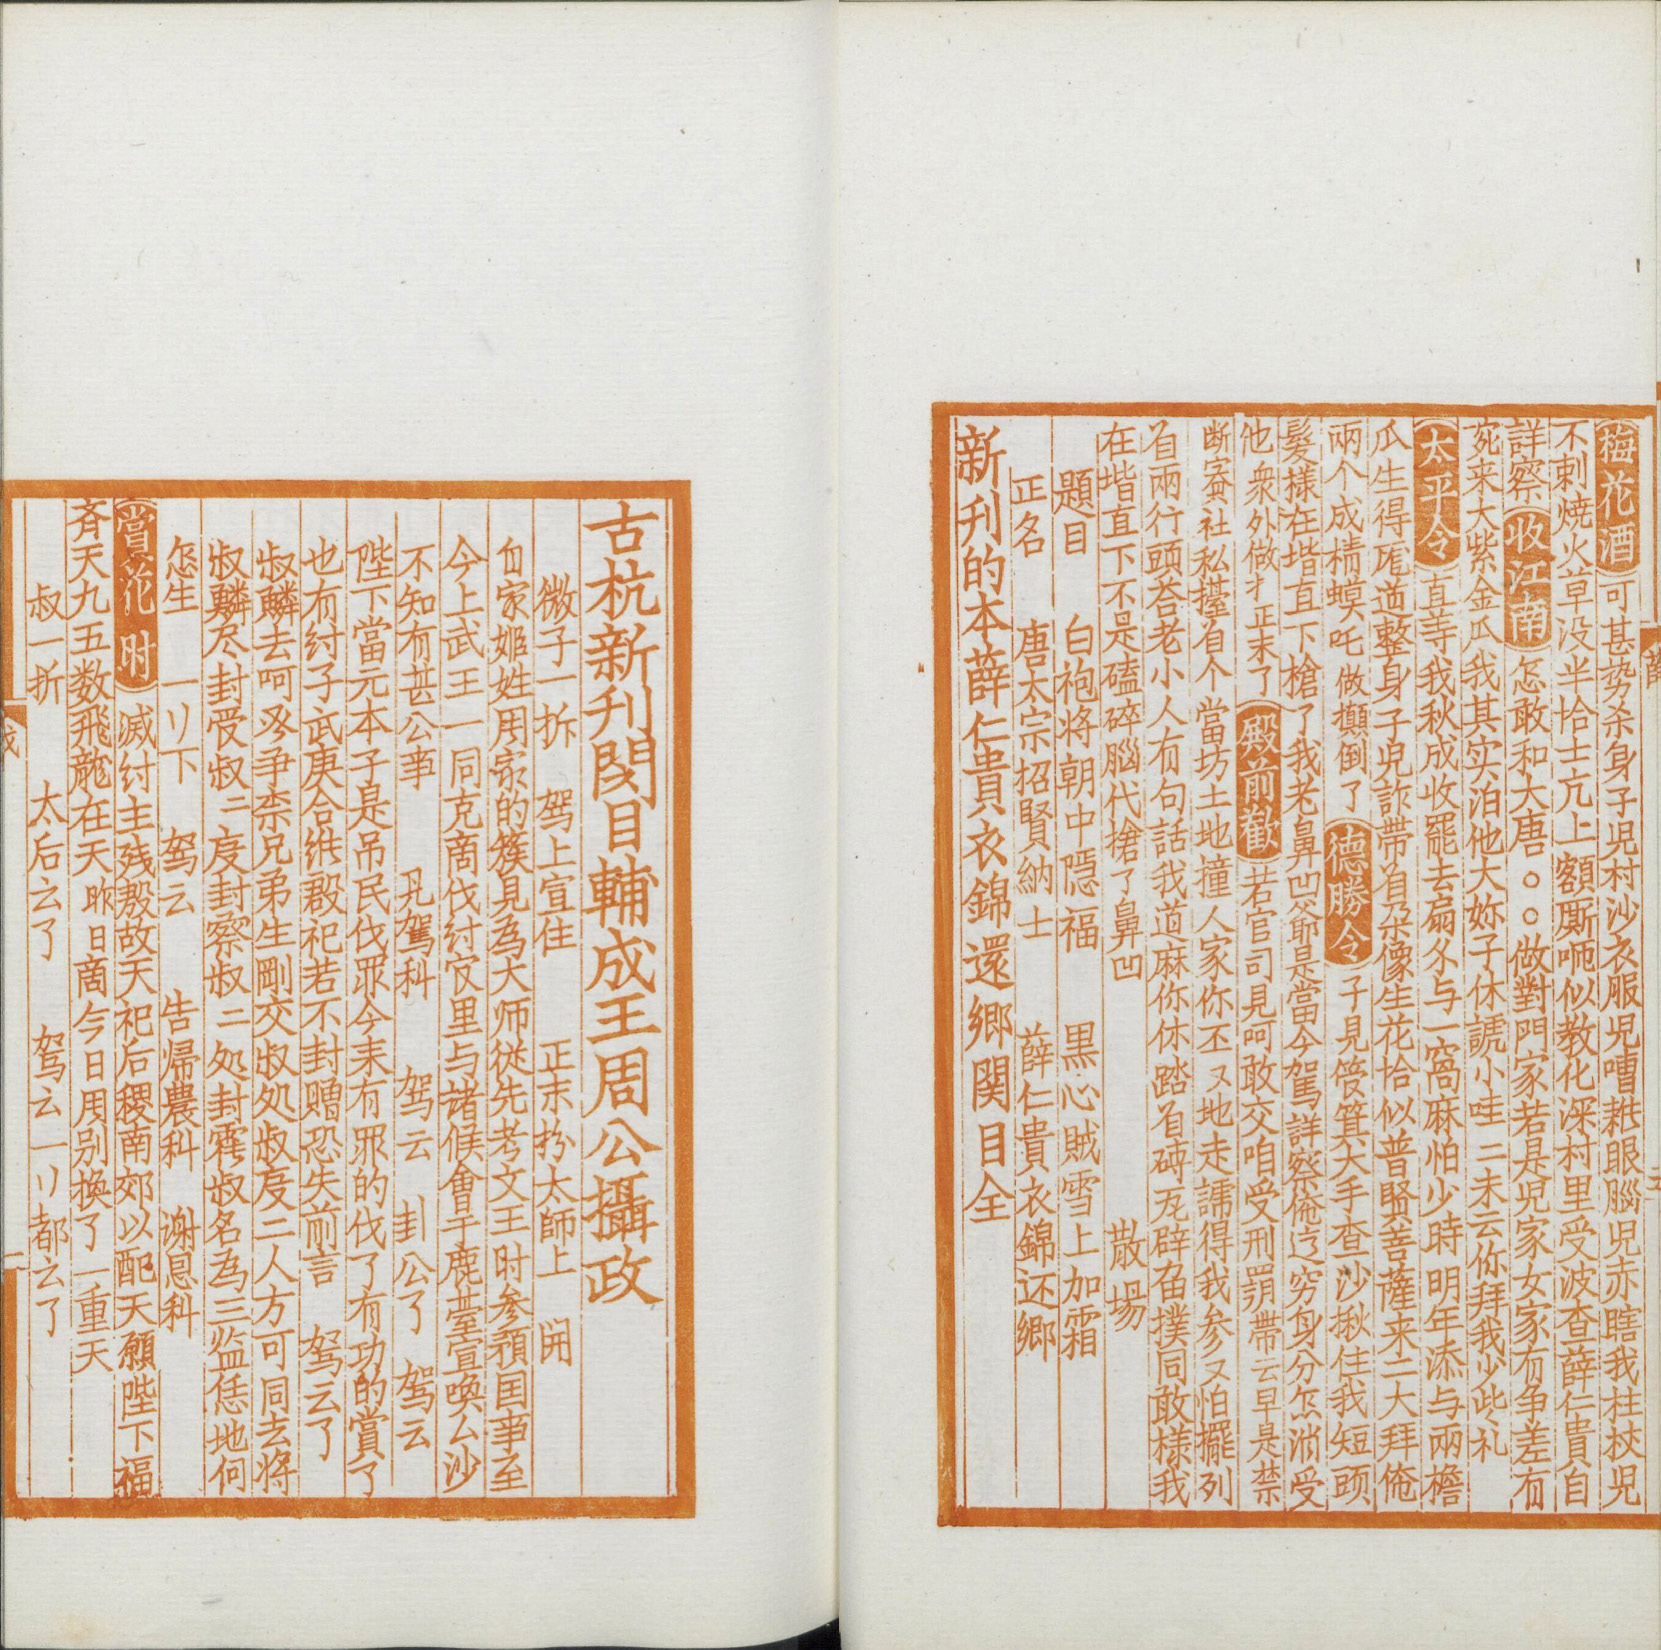 梅花酒 可甚势杀身子児村沙衣服児嘈耗眼腦児赤瞎我柱杖児
不刺燒火草没半恰土亢上額厮㖠似教化深村里受波查薛仁貴自
詳察 收江南 怎敢和大唐○○做對門家若是児家女家有争差有
宛来大紫金瓜我其实泊他大妳子休諕小哇二未云你拜我少些礼
太平令 直等我秋成收罷去扇夯与一窩麻怕少時明年添与兩檐
瓜生得庬道整身子児詐帶㸔朶像生花恰似普賢菩薩来二大拜俺
兩个成精蟆吒做攧倒了 德勝令 子見筊箕大手查沙揪住我短頭
髮様在堦直下槍了我老鼻凹爺是當今駕詳察俺這穷身分怎消受
他 衆外做才正末了 殿前歡 若官司見呵敢交咱受刑罰帶云早是禁
断賽社私擡㸔个當坊土地撞人家你丕又地走諕得我参又怕擺列
㸔兩行頭荅老小人有句話我道麻你休踏㸔磚瓦辟㕣撲同敢様我
在堦直下不是磕碎腦代搶了鼻凹 散場
題目 白袍将朝中隱福 黒心賊雪上加霜
正名 唐太宗招賢納士 薛仁貴衣錦还鄉
新刋的本薛仁貴衣錦還鄉関目全
古杭新刋関目輔成王周公攝政
微子一折 駕上宣住 正末扮太師上 開
自家姬姓周家的簇見為大师従先考文王时参預国事至
今上武王一同克商伐紂㝎里与诸候會于鹿䑓宣喚么沙
不知有甚公事 見駕科 駕云 封公了 駕云
陛下當元本子是吊民伐罪今来有罪的伐了有功的賞了
也有紂子武庚合継殷祀若不封贈恐失前言 駕云了
叔鱗去呵必争柰兄弟生剛交叔処叔度二人方可同去将
叔鱗尽封受叔二度封察叔二処封霍叔名為三监恁地何
怎生 一リ下 駕云 告帰農科 谢恩科
賞花时 滅紂主残殷故天祀后稷南郊以配天願陛下福
斉天九五数飛龍在天昨日商今日周别換了一重天
叔一折 太后云了 駕云一リ都云了